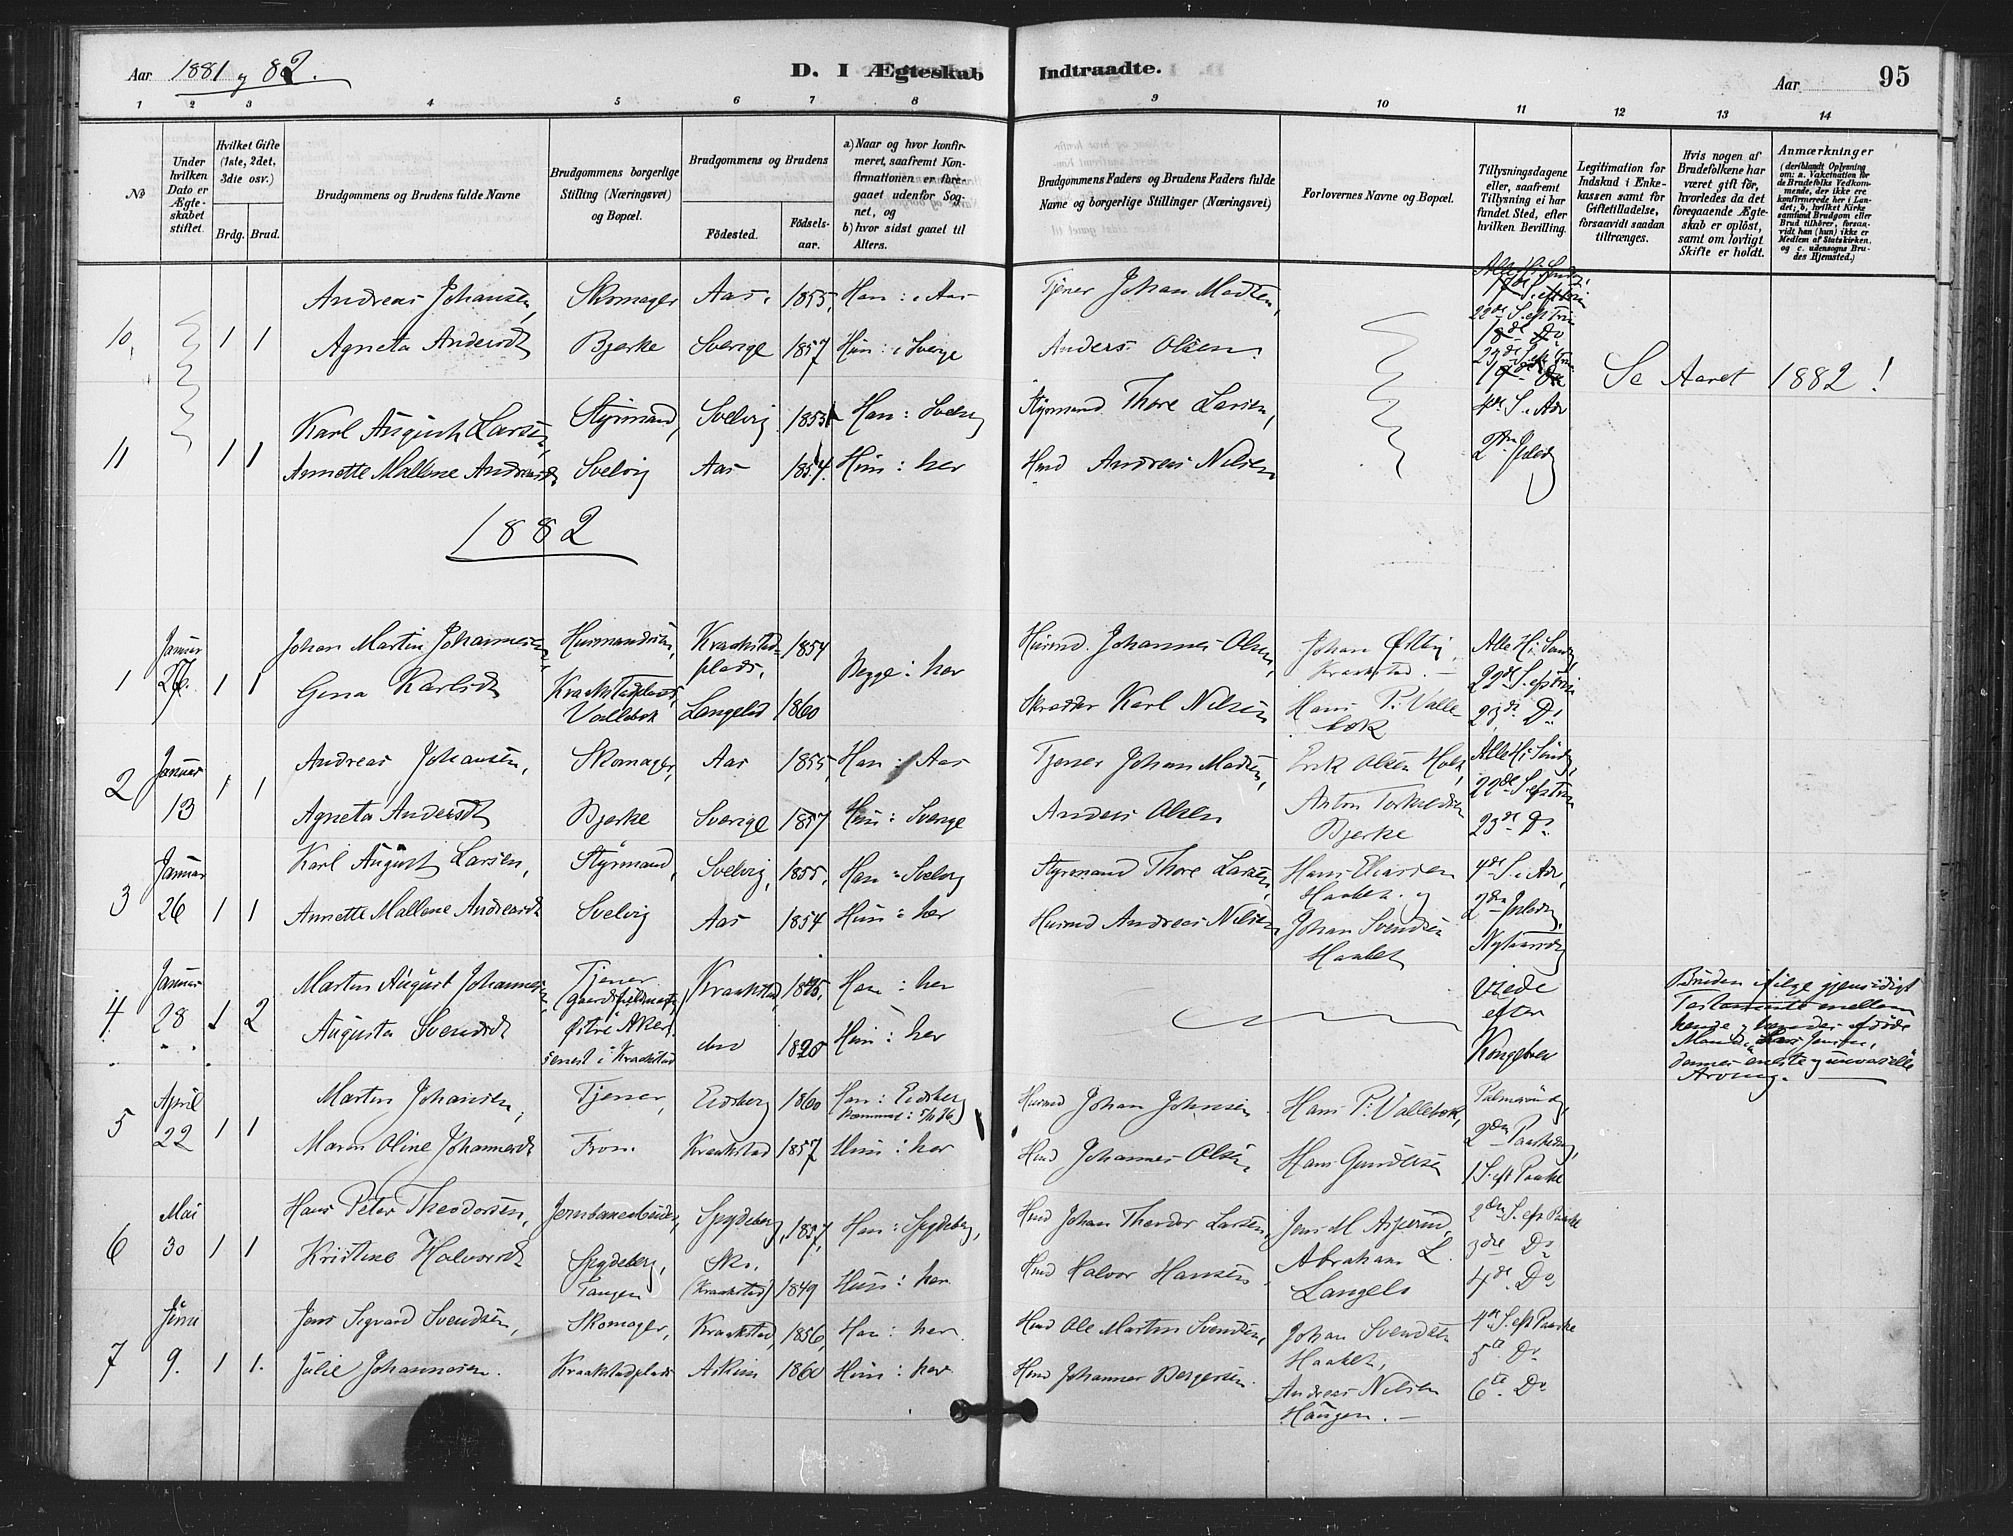 Aar 1881 og 82.
D. I Ægteskab Indtraadte.
Aar 95
1 2 3 4 5 6 7 8 9 10 11 12 13 14
No
Under hvilken Dato er Ægteskabet stiftet.
Hvilket Gifte (1ste, 2det, 3die osv.)
Brdg. Brud.
Brudgommens og Brudens fulde Navne
Brudgommens borgerlige Stilling (Næringsvei) og Bopæl.
Brudgommens og Brudens
Födested. Födsels-aar.
a) Naar og hvor konfirmeret, saafremt Konfirmationen er foregaaet udenfor Sognet, og
b) hvor sidst gaaet til Alters.
Brudgommens Faders og Brudens Faders fulde Navne og borgerlige Stillinger (Næringsvei)
Forlovernes Navne og Bopæl.
Tillysningsdagene eller, saafremt Tillysning ei har fundet Sted, efter hvilken Bevilling.
Legitimation for Indskud i Enkekassen samt for Giftetilladelse, forsaavidt saadan tiltrænges.
Hvis nogen af Brudefolkene har været gift för, hvorledes da det foregaaende Ægteskab er oplöst, samt om lovligt Skifte er holdt.
Anmærkninger (deriblandt Oplysning om: a. Vakcination för de Brudefolks Vedkommende, der ikke ere konfirmerede her i Landet; b. hvilket Kirkesamfund Brudgom eller Brud tilhörer, forsaavidt han (hun) ikke er Medlem af Statskirken, og c. udensogns Brudes Hjemsted.)
Andreas Johansen, Skomager Aas. 1855, Han: i Aas Tjener Johan Madsen,
10, 1 1 Agneta Andersdt Bjerke Sverige 1857 Hun: i Sverige Anders Olsen. Se Aaret 1882!
Karl August Larsen, Styrmand, Svelvig 1855 Han: Svelvig Styrmand Thore Larsen, 4de S. i Adv
11 1 1 Annette Mallene Andreasdt Svelvig Aas 1854. Hun: her Hmd Andreas Nilsen 2den Juledg
1882
Januar Johan Martin Johannesen, Husmandssøn, Kraakstadplads, 1854 Begge: her Husmd. Johannes Olsen, Johan Østby, Kraakstad. Alle H: Sønd,
1 1 1 Gina Karlsdt Kraakstadplads, Vallebæk Langelid 1860 Skrædder Karl Nilsen Hans P: Vallebæk 22de S. eft Trin 23de Do
Januar Andreas Johansen, Skomager, Aas 1855, Han: Aas Tjener Johan Madsen, Erik Olsen Holt, Alle H: Sønd,
2 13 1 1 Agneta Andersdt Bjerke Sverige 1857 Hun: Sverige Anders Olsen Anton Torkildsen Bjerke 22de S. eft Trin 23de Do
Januar Karl August Larsen, Styrmand, Svelvig, 1855, Han: Svelvig Styrmand Thore Larsen, Hans Eliassen Haabet. og 4de S. i Adv,
3 26 1 1 Annette Mallene Andreasdt Svelvig Aas 1854 Hun: her Husmd Andreas Nilsen Johan Svendsen Haabet 2den Juledg, Nytaarsdg
Januar Martin August Johannesen, Tjener Kraakstad, Han: her viede
4 28 1 2 Augusta Svendsdt Østre Aker, senest i Kraakstad do Hun: her efter Kongebrev
Bruden ifølge gjensidigt Testamente mellem hende og hendes afdøde Mand, Lars Jensen, dennes eneste og universelle Arving.
April Martin Johansen, Tjener, Eidsberg 1860 Han: Eidsberg Husmd Johan Johnsen Hans P: Vallebæk, Palmesøndg,
5 22 1 1 Maren Oline Johannesdt Fron. Kraakstad 1857 Hun: her Hmd Johannes Olsen, Hans Gundersen 2den Paaskedg, 1 S. eft Paaske
Mai Hans Peter Theodorsen, Jernbanearbeider, Spydeberg, 1857, Han: Spydeberg, Hmd Johan Theodor Larsen, Jens M Asperud, 2den S. eft Paaske
6 30 1 1 Kristine Halvorsdt Spydeberg, Tangen Ski. (Kraakstad) 1849 Hun: her Hmd Halvor Hansen Abraham L. Langeli 3die Do 4de Do
Juni Jens Sigvard Svendsen, Skomager, Kraakstad, 1856, Han: her. Hmd Ole Martin Svendsen, Johan Svendsen Haabet, 4de S. eft Paaske
7 9. 1 1. Julie Johannesen. Kraakstadplads Askim 1860 Hun: her Hmd Johannes Borgersen. Andreas Nilsen Haugen. 5te Do 6te Do